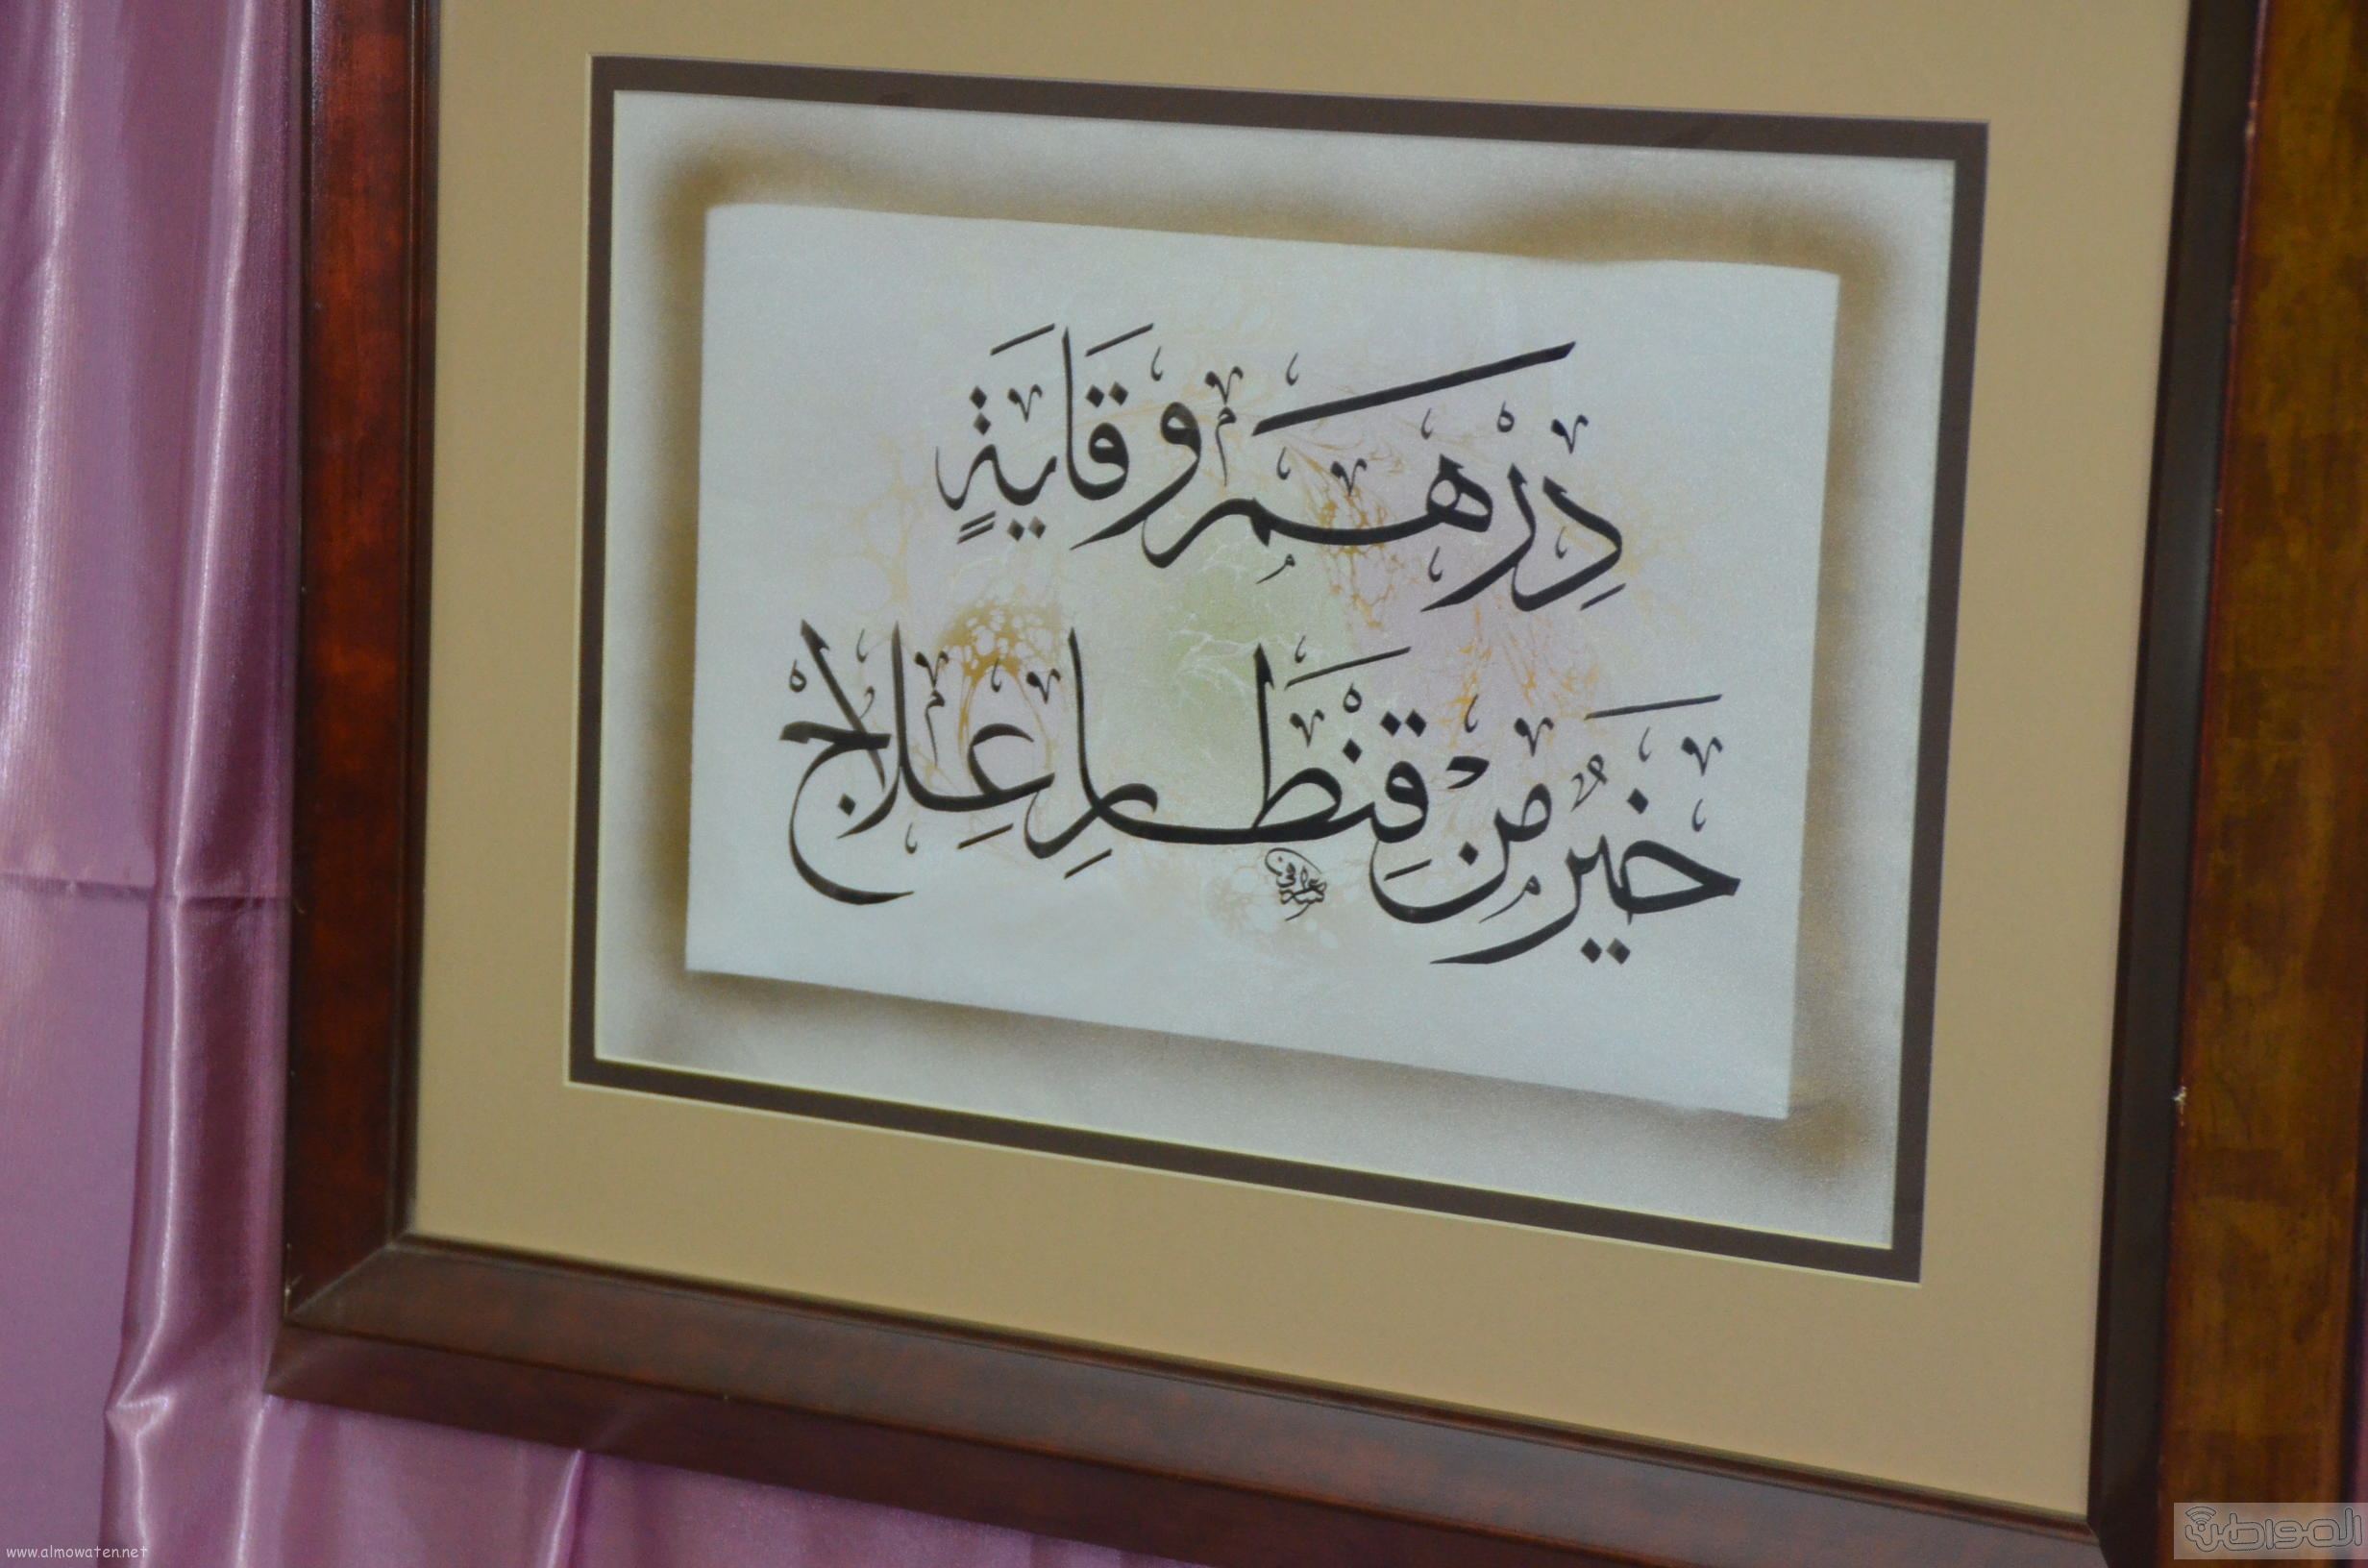 دِرْهَمُ وَقَايَةٍ
خَيْرٌ مِنْ قِنْطَارِ عِلَاجْ
www.almowaten.net
المواطن